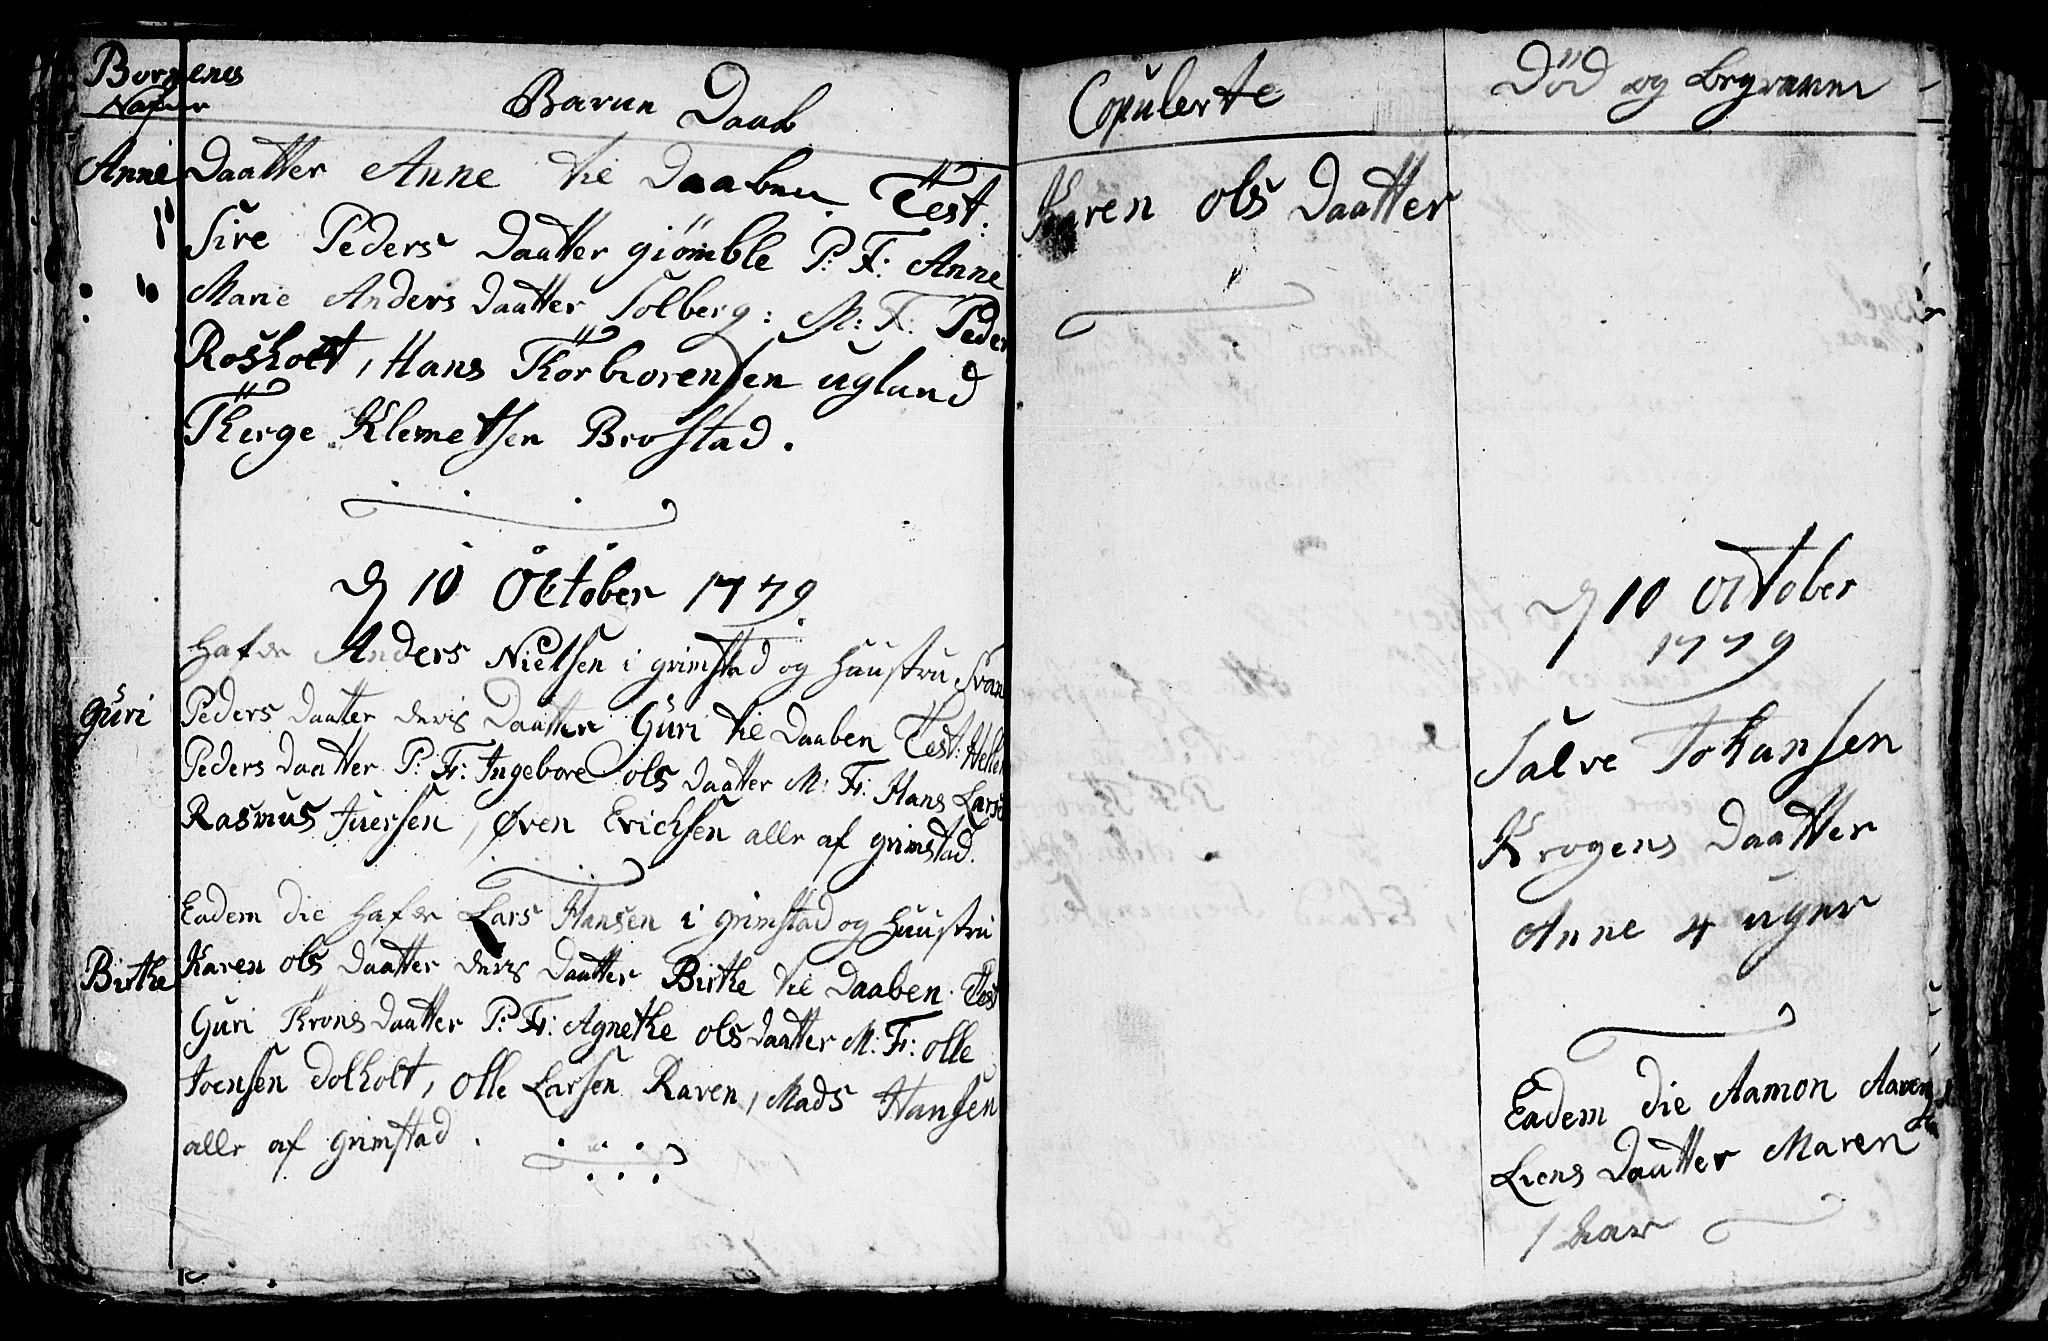 Bornenes
Nafner
Barne Daab
Anne
Daatter Anne til Daaben Test:
Sire Peders Daatter giömble P: F: Anne
Marie Anders Daatter Solberg: M: F: Peder
Rosholt, Hans Torbiorensen ugland
Terge Klemetsen Brostad.
d 10 October 1779
hafde Anders Nielsen i grimstad og Huustru Svan
Güri
Peders Daatter deris Daatter Güri til Daaben Test: Hellen
Peders Daatter P: F: Ingebore ols Daatter M: F: Hans Larsen
Rasmus Juersen, Øven Erichsen alle af grimstad.
Eadem die hafde Lars Hansen i grimstad og Huustru
Birthe
Karen ols Daatter deris Daatter Birthe til Daaben. Test
Guri Trons Daatter P: F: Agnethe ols Daatter M: F: olle
Joensen dolholt, olle Larsen Raven, Mads Hansen
alle af grimstad.
Copulerte
Karen ols Daatter
Död og begraven
d 10 october
1779
Salve Johansen
Krogens Daatter
Anne 4 uger
Eadem die Aamon
Liens Daatter Maren
1 Aar